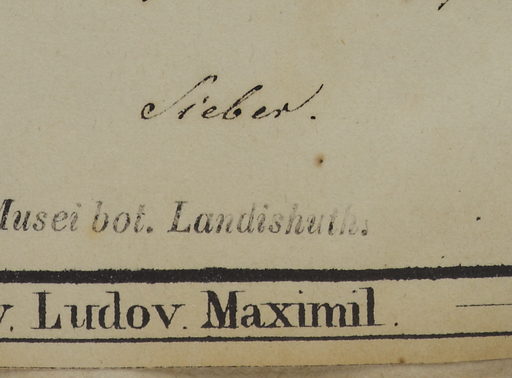 Sieber.
Musei bot. Landishuth.
v. Ludov. Maximil.